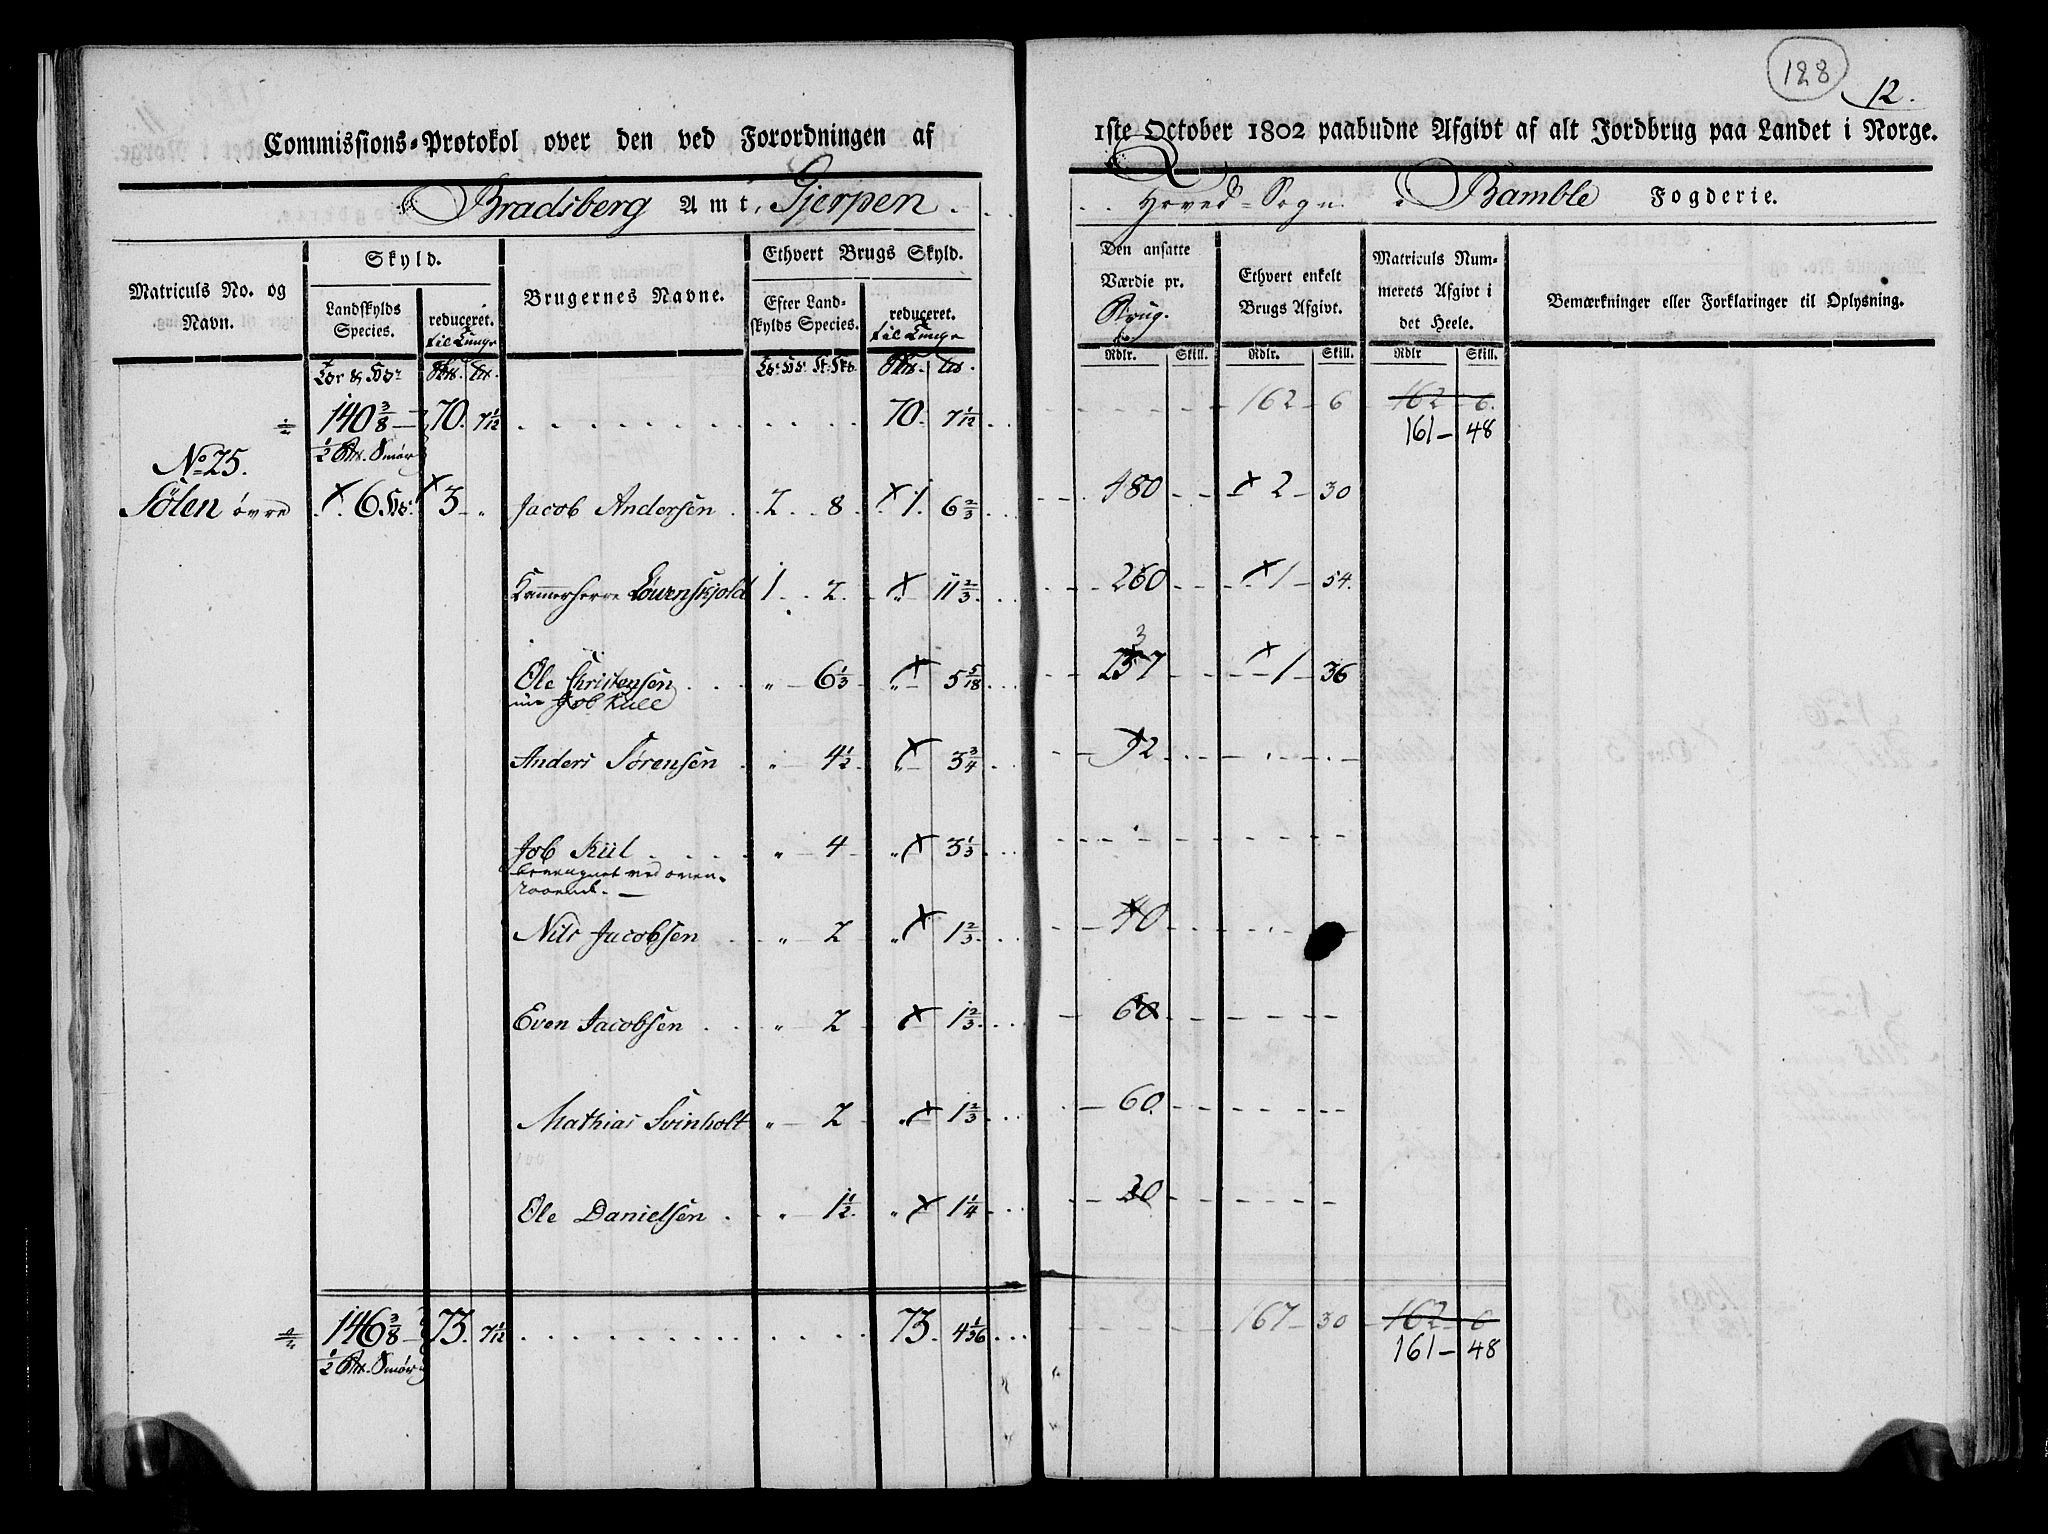 128
12.
Commissions-Protokol over den ved Forordningen af 1ste October 1802 paabudne Afgivt af alt Jordbrug paa Landet i Norge.
Bradsberg Amt, Gjerpen Hoved-Sogn Bamble Fogderie.
Matriculs No. og Navn.
Skyld.
Landskylds Species.
reduceret. til Tunge
Brugernes Navne.
Ethvert Brugs Skyld.
Efter Landskylds Species.
reduceret. til Tunge
Den ansatte Værdie pr. Brug.
Ethvert enkelt Brugs Afgivt.
Matriculs Nummerets Afgivt i det Heele.
Bemærkninger eller Forklaringer til Oplysning.
Rdlr. Skill. Rdlr. Skill. Rdlr Skill.
140 3/8 70. 7 1/12 70. 7 1/12 162 6 162 6.
1/2 Smør 161 48
No 25.
Sølen övre 6 3 " Jacob Andersen 2 8 1. 6 2/3 480 2 30
Kammerherre Löwenskjold 1 2 " 11 2/3 260 1 54.
Ole Christensen " 6 1/3 " 5 5/18 237 1 36
Anders Sörensen " 4 1/2 " 3 3/4 52
Job Kiil " 4 " 3 1/3
Nils Jacobsen " 2 " 1 2/3 40
Even Jacobsen " 2 " 1 2/3 60
Mathias Svinholt " 2 " 1 2/3 60
Ole Danielsen " 1 1/2 " 1 1/4 30
146 3/8 73. 7 1/12 73. 4 1/36 167 30 162 6
1/2 Smør 161 48